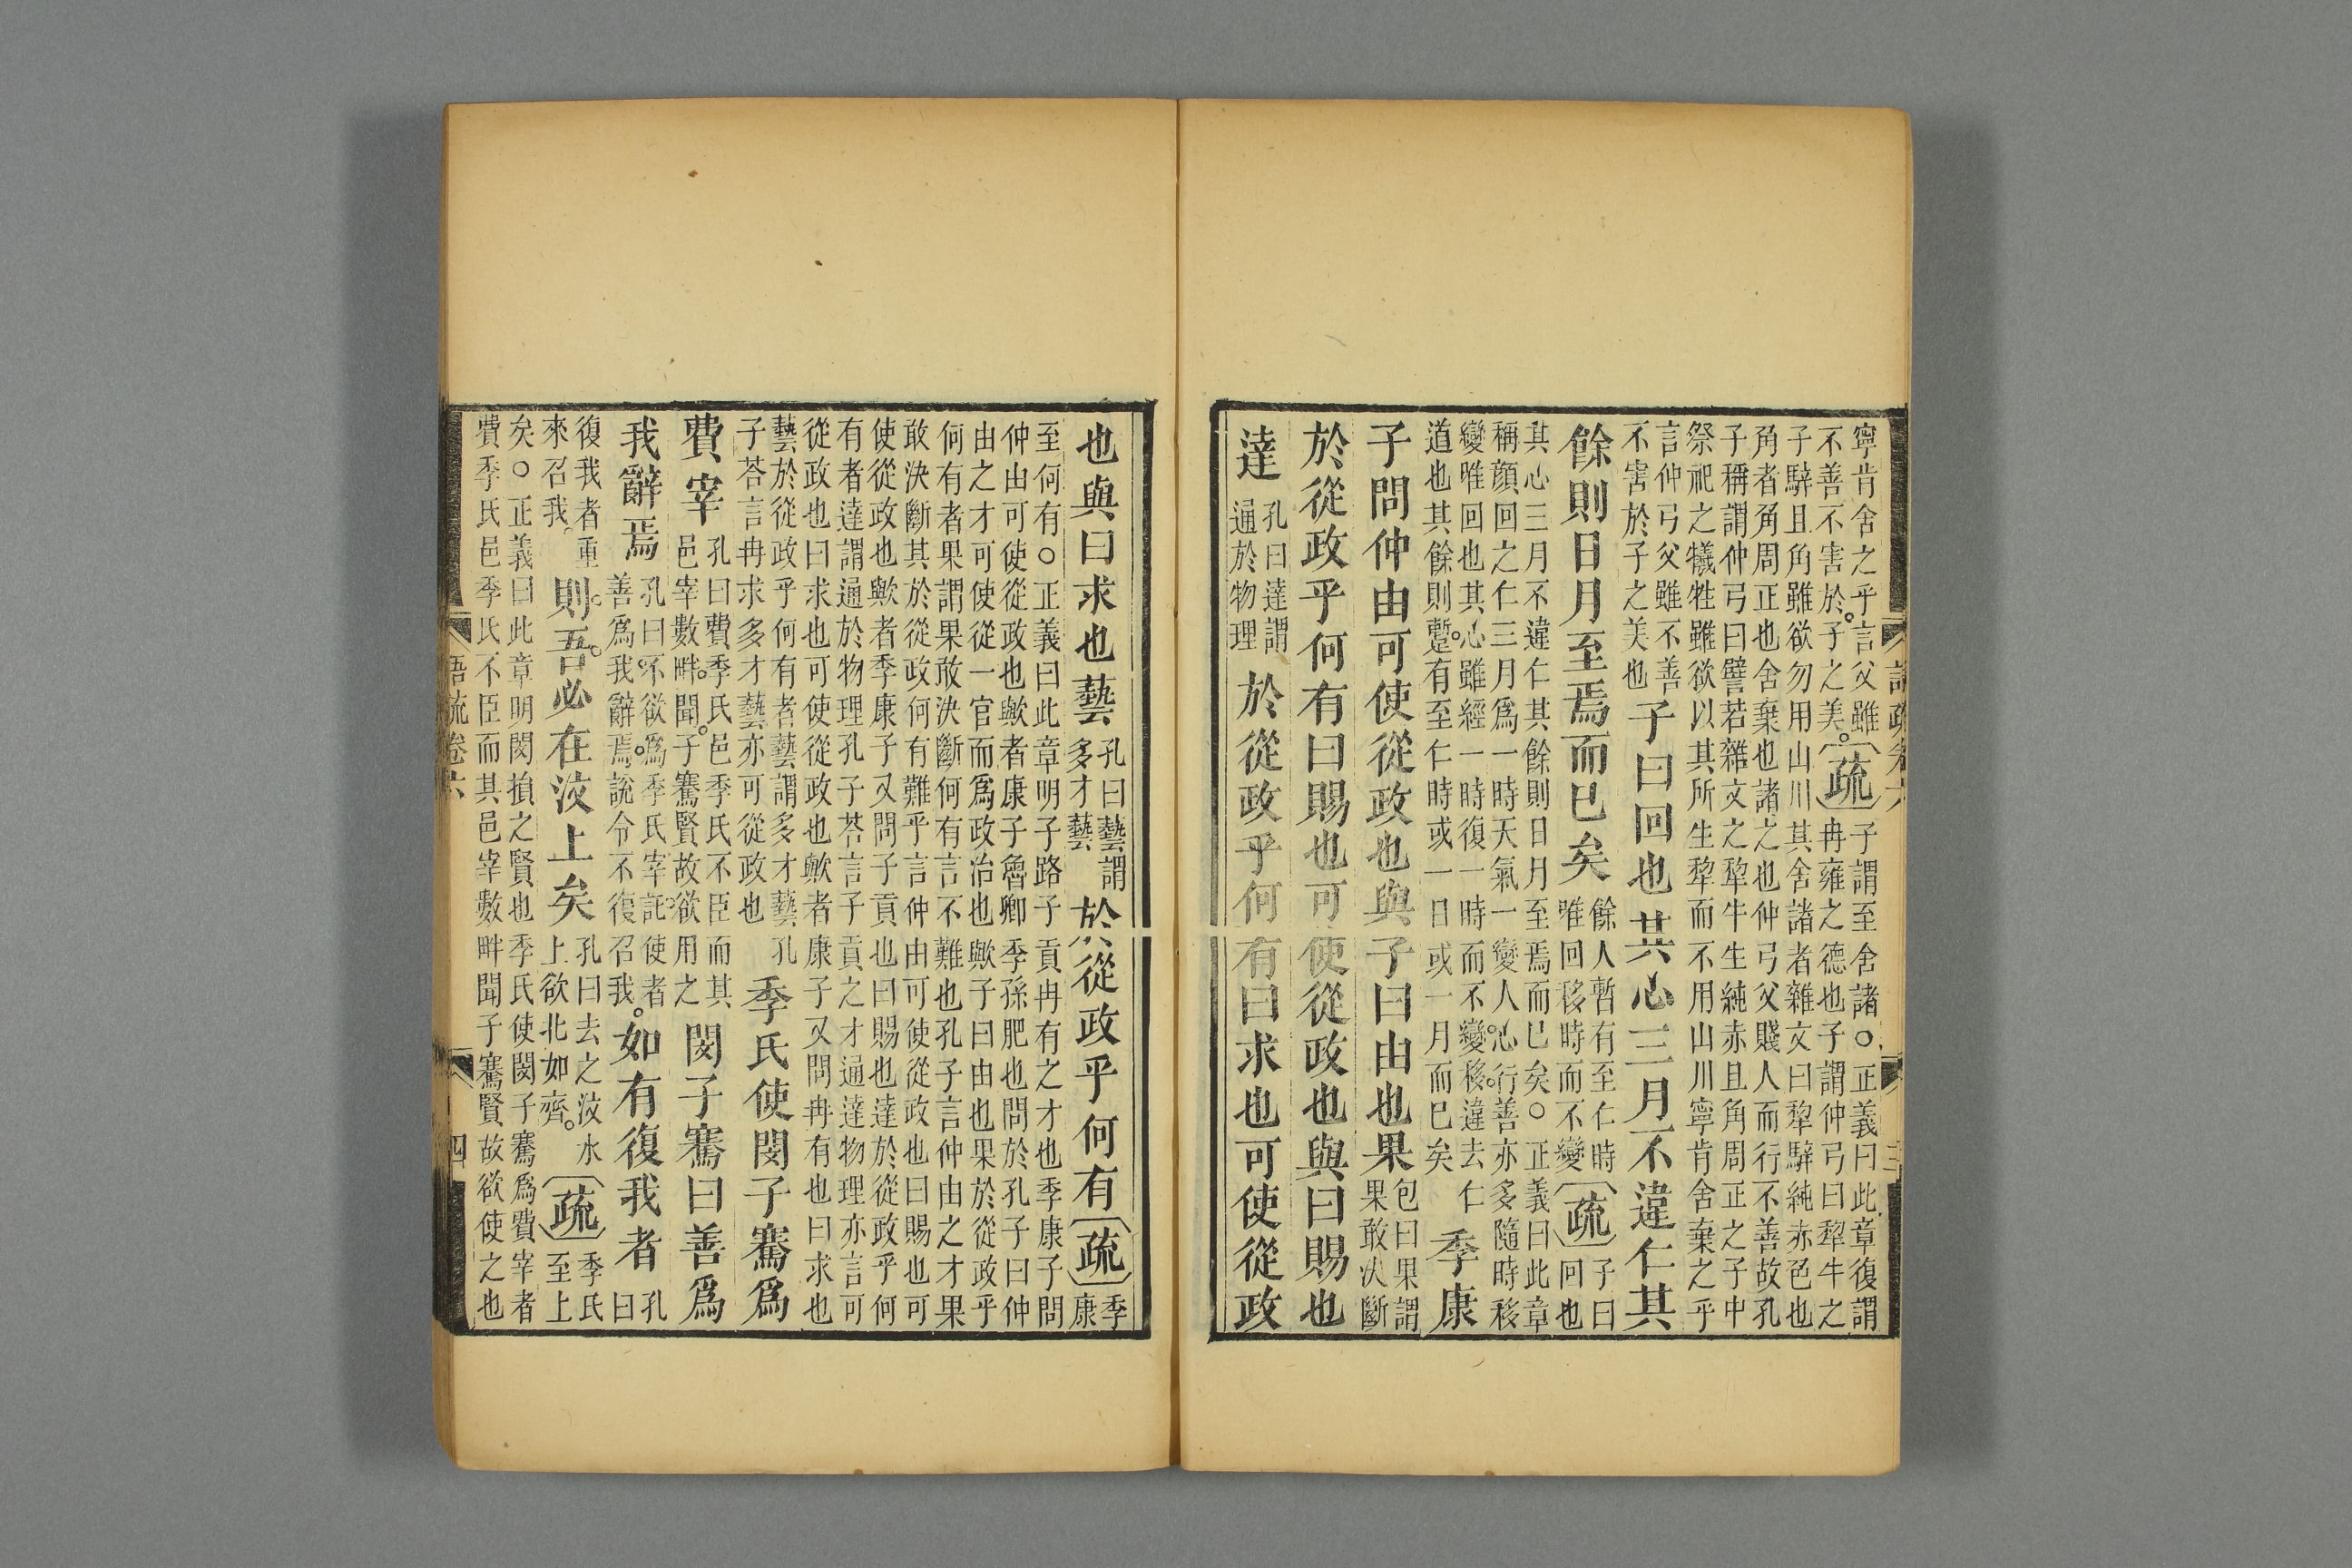 寧肯舍之乎。言父雖
不善不害於子之美。
疏
子謂至舍諸○正義曰此章復謂
冉雍之德也子謂仲弓曰犁牛之
子騂且角雖欲勿用山川其舍諸者雜文曰犁騂純赤色也
角者角周正也舍棄也諸之也仲弓父賤人而行不善故孔
子稱謂仲弓曰譬若雜文之犂牛生純赤且角周正之子中
祭祀之犧牲雖欲以其所生犂而不用山川寧肯舍棄之乎
言仲弓父雖不善
不害於子之美也
子曰回也其心三月不違仁其
餘則日月至焉而已矣
餘人暫有至仁時
唯回移時而不變
疏
子曰
回也
其心三月不違仁其餘則日月至焉而已矣○正義曰此章
稱顏回之仁三月爲一時天氣一變人心行善亦多隨時移
變唯回也其心雖經一時復一時而不變移違去仁
道也其餘則蹔有至仁時或一日或一月而已矣
季康
子問仲由可使從政也與子曰由也果
包曰果謂
果敢決斷
於從政乎何有曰賜也可使從政也與曰賜也
達
孔曰達謂
通於物理
於從政乎何有曰求也可使從政
也與曰求也藝
孔曰藝謂
多才藝
於從政乎何有
疏
季
康
至何有○正義曰此章明子路子貢冉有之才也季康子問
仲由可使從政也歟者康子魯卿季孫肥也問於孔子曰仲
由之才可使從一官而爲政治也歟子曰由也果於從政乎
何有者果謂果敢決斷何有言不難也孔子言仲由之才果
敢決斷其於從政何有難乎言仲由可使從政也曰賜也可
使從政也歟者季康子又問子貢也曰賜也達於從政乎何
有者達謂通於物理孔子荅言子貢之才通達物理亦言可
從政也曰求也可使從政也歟者康子又問冉有也曰求也
藝於從政乎何有者藝謂多才藝孔
子荅言冉求多才藝亦可從政也
季氏使閔子騫爲
費宰
孔曰費季氏邑季氏不臣而其
邑宰數畔。聞。子騫賢故欲用之
閔子騫曰善爲
我辭焉
孔曰不欲爲季氏宰託使者
善爲我辭焉。說令不復召我。
如有復我者
孔
曰
復我者重
來召我。
則吾必在汶上矣
孔曰去之汶水
上欲北如齊。
疏
季氏
至上
矣○正義曰此章明閔損之賢也季氏使閔子騫爲費宰者
費季氏邑季氏不臣而其邑宰數畔聞子騫賢故欲使之也
語疏卷六
四